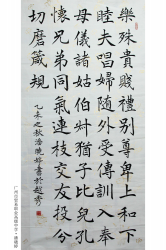 樂殊貴賤禮別尊卑上和下
睦夫唱婦隨外受傅訓入奉
母儀諸姑伯叔猶子比兒孔
懷兄弟同氣連枝交友投分
切磨箴規
乙未之秋潘曉婷書於越秀